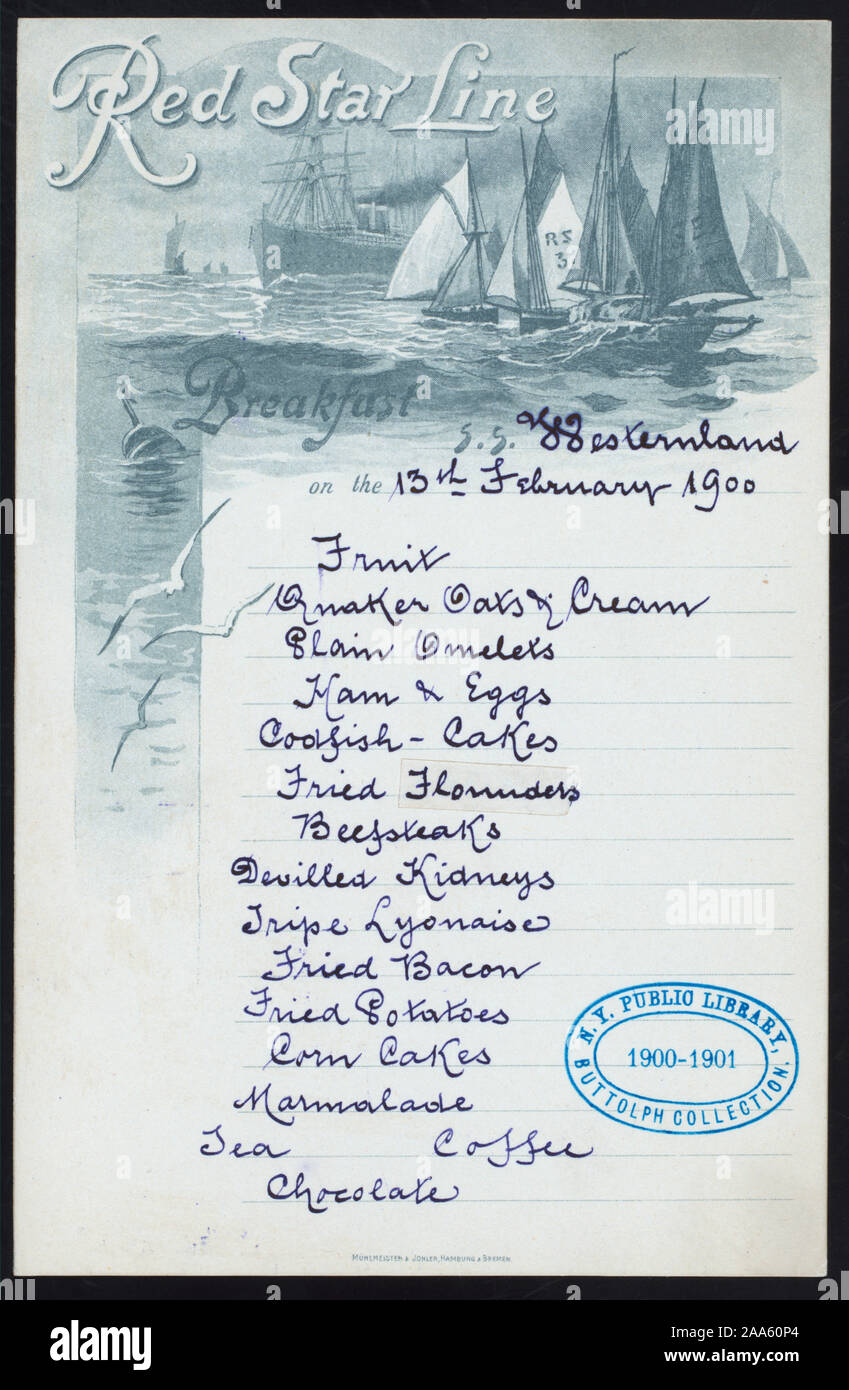 Red Star Line
RS
3
Breakfast
S.S. Westernland
on the 13th February 1900
Fruit
Quaker Oats & Cream
Plain Omelets
Ham & Eggs
Codfish - Cakes
Fried Flounders
Beefsteaks
Devilled Kidneys
Tripe Lyonaise
Fried Bacon
Fried Potatoes
Corn Cakes
Marmalade
Tea Coffee
Chocolate
N. Y. PUBLIC LIBRARY,
1900-1901
BUTTOLPH COLLECTION.
MÜHLMEISTER & JOHLER, HAMBURG & BREMEN.
alamy
Image ID: 2AA60P4
www.alamy.com